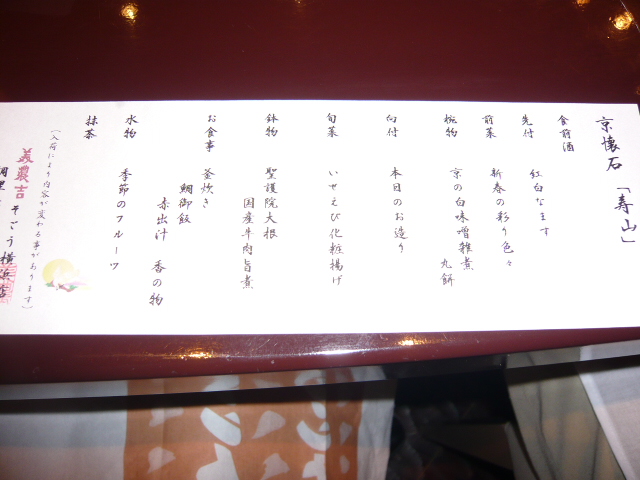 京懐石「寿山」
食前酒
先付　紅白なます
前菜　新春の彩り色々
椀物　京の白味噌雑煮　丸餅
向付　本日のお造り
旬菜　いせえび化粧揚げ
鉢物　聖護院大根
国産牛肉旨煮
お食事　釜炊き
鯛御飯
赤出汁　香の物
水物　季節のフルーツ
抹茶
(入荷により内容が変わる事があります)
美濃吉　そごう横浜店
調理